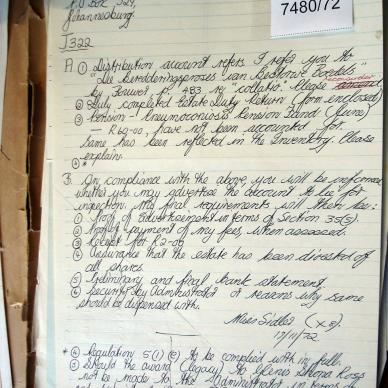 7480/72
P.O Box 524,
Johannesburg.
J322
A ① Distribution account refers I refer you to
"Die Beredderingsproses van Bestorwe Boedels"
by Fouwer p. 483 re "collatio". Please
② Duly completed Estate Duty Return (form enclosed)
③ Pension - Pneumoconiosis Pension Fund (June)
- R60-00, have not been accounted for.
Same has been reflected in the Inventory. Please
explain.
④ *
B. On compliance with the above, you will be informed
whether you may advertise the account to lie for
inspection. My final requirements will then be:
① Proof of advertisement in terms of Section 35(5).
② Proof of payment of my fees, when assessed.
③ Receipt for R2-00
④ Assurance that the estate has been divested of
all shares.
⑤ Preliminary and final bank statement.
⑥ Security by Administrator or reasons why same
should be dispensed with.
Miss Sidler (x 8).
17/11/72
* ④ Regulation 5(1)(e) to be complied with in full.
⑤ Should the award (legacy) to Glenis Shona Ross
not be made to the Administrator in terms of